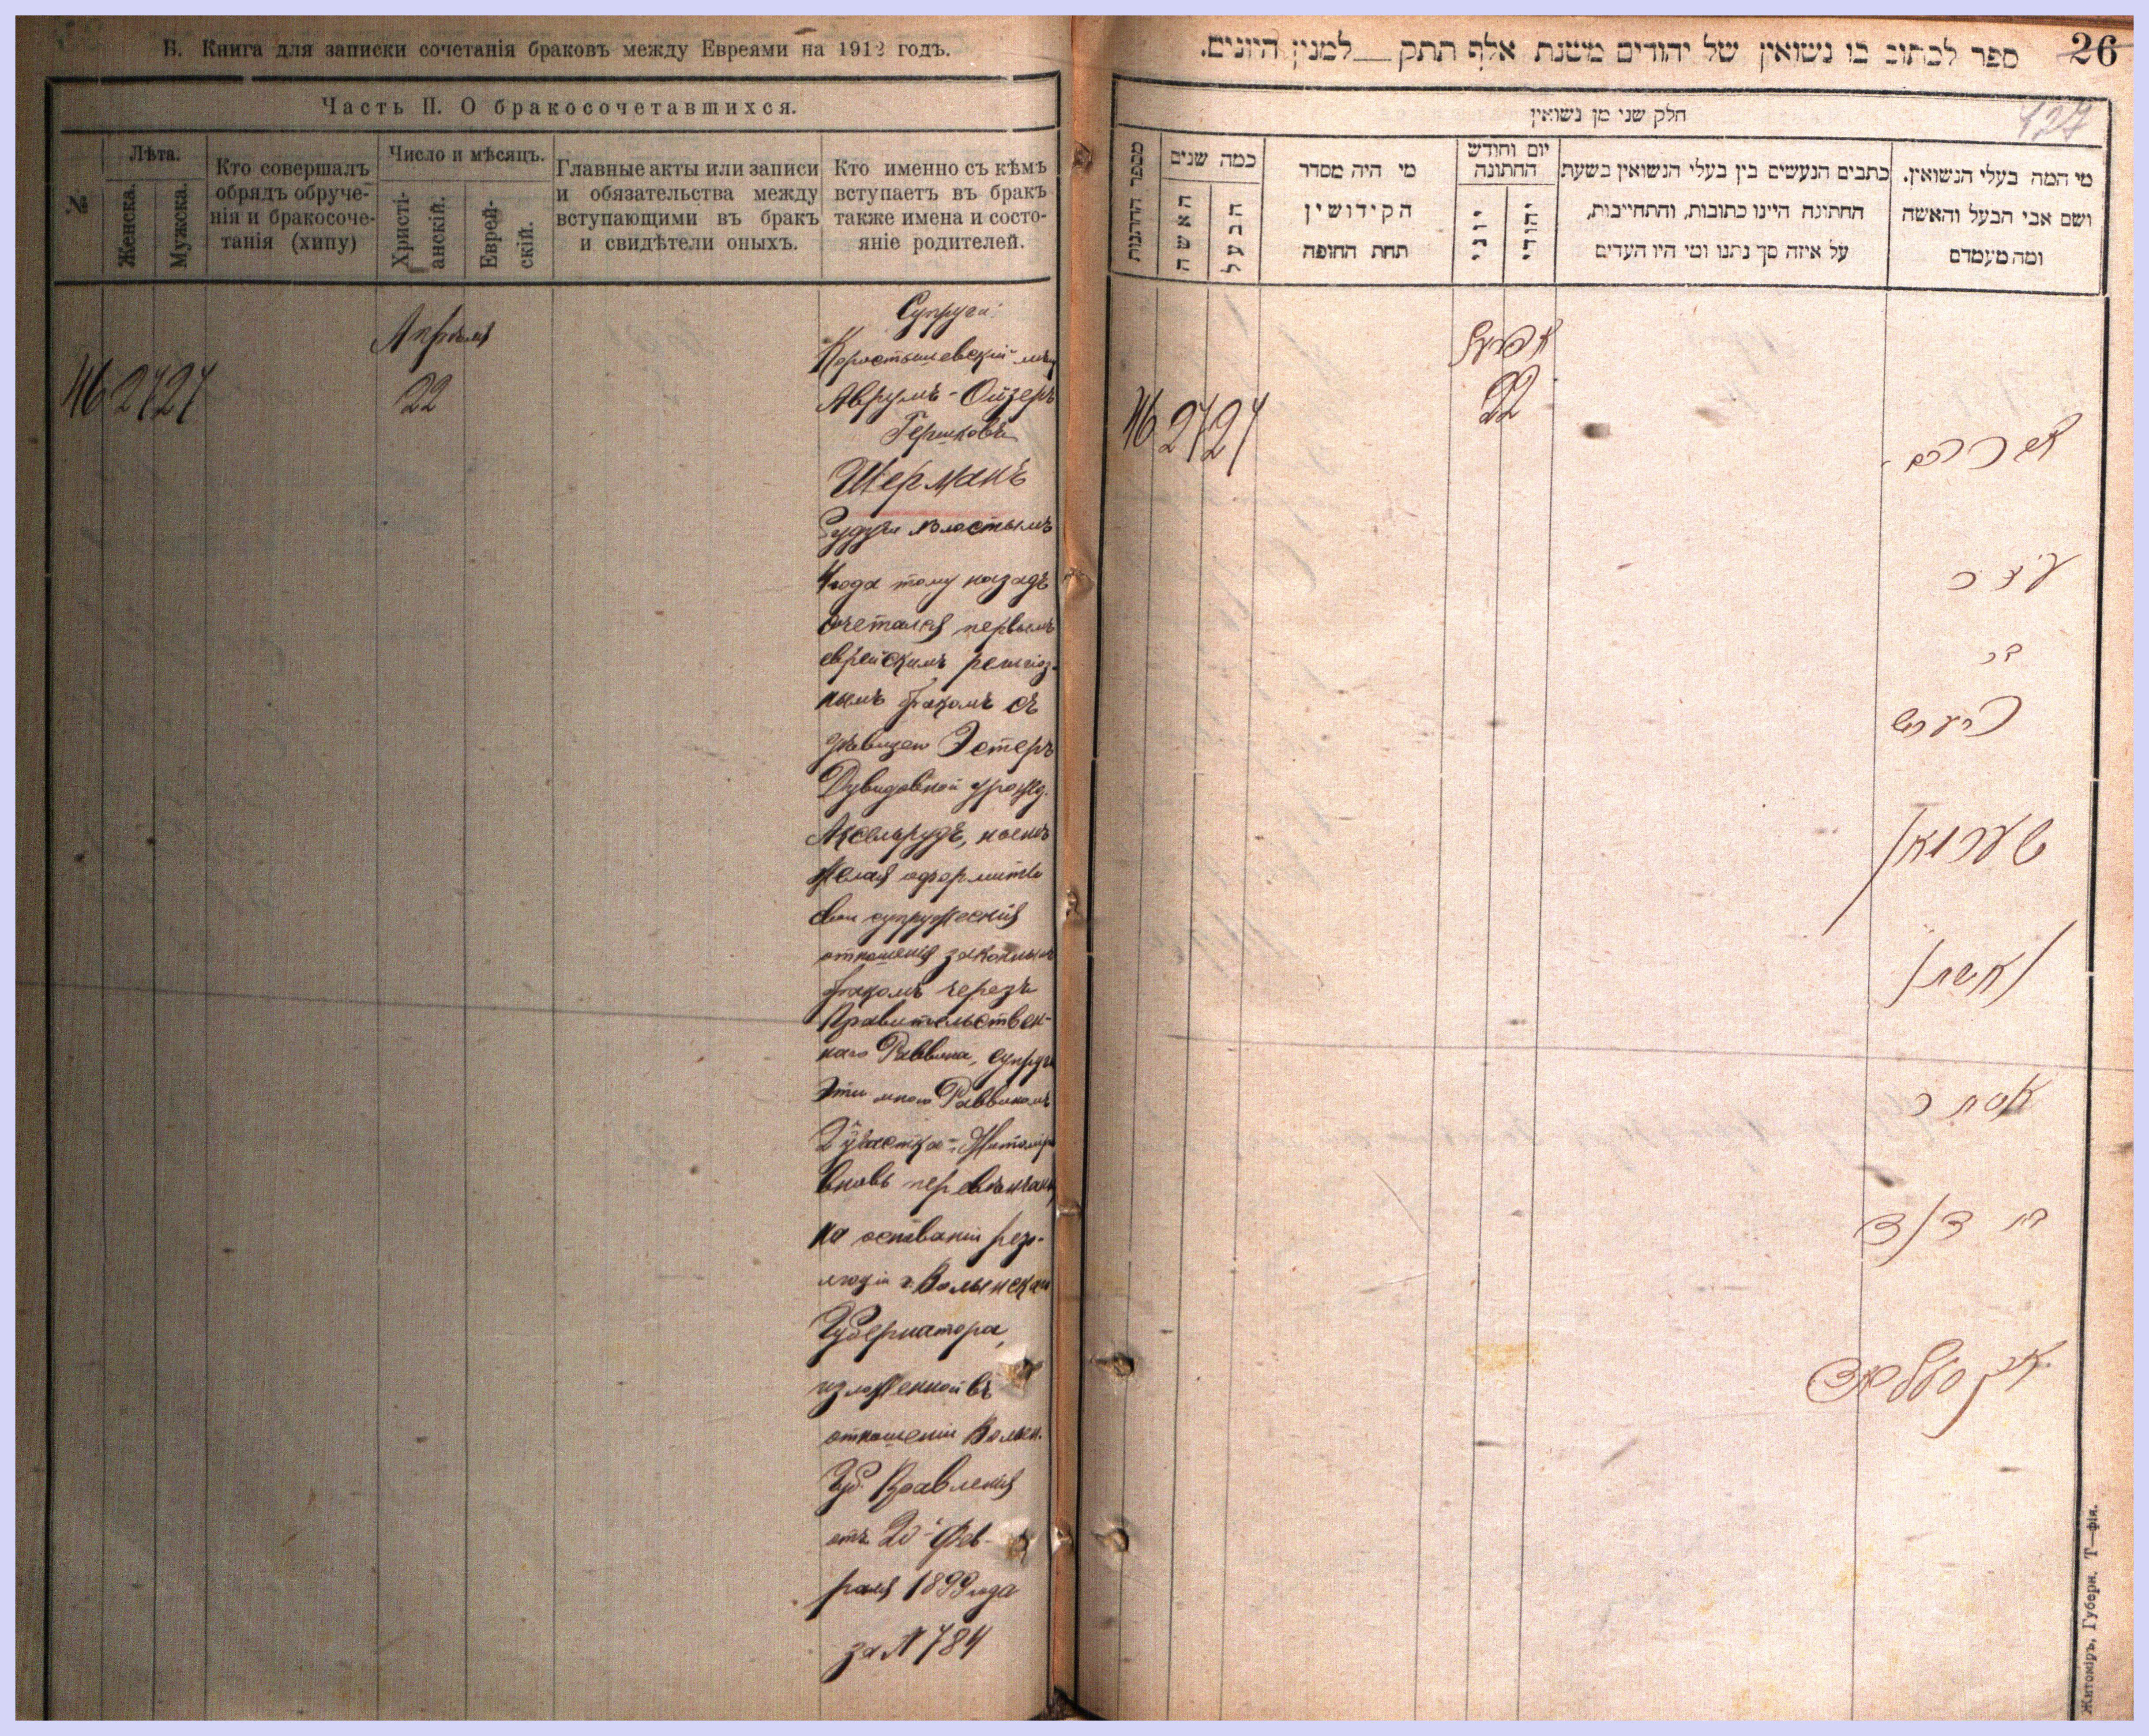 Б. Книга для записки сочетанія браковъ между Евреями на 1912 годъ.
Часть II. О бракосочетавшихся.
№
Лѣта.
Женска.
Мужска.
Кто совершалъ
обрядъ обруче-
нія и бракосоче-
танія (хипу)
Число и мѣсяцъ.
Христі-
анскій.
Еврей-
скій.
Главные акты или записи
и обязательства между
вступающими въ бракъ
и свидѣтели оныхъ.
Кто именно съ кѣмъ
вступаетъ въ бракъ
также имена и состо-
яніе родителей.
46 27 27
Апрѣля
22
Супруги:
Коростышевскій мѣщ
Аврумъ-Ойзеръ
Гершковъ
Шерманъ
Будучи холостымъ
4 года тому назадъ
сочетался первымъ
еврейскимъ религіоз-
нымъ бракомъ съ
дѣвицею Эстеръ
Дувидовной урожд.
Аксельрудъ, нынѣ
желая оформить
свои супружескія
отношенія законнымъ
бракомъ черезъ
Правительствен-
наго Раввина, супруги
эти мною Раввиномъ
2 участка г. Житомира
вновь перевѣнчаны
на основаніи резо-
люціи г. Волынскаго
Губернатора,
изложенной въ
отношеніи Волын.
Губ. Правленія
отъ 20 Фев-
раля 1899 года
за № 784
26
ספר לכתוב בו נשואין של יהודים משנת אלף תתק__למנין היונים.
127
חלק שני מן נשואין
מספר החתונות
כמה שנים
האשה
הבעל
מי היה מסדר
הקידושין
תחת החופה
יום וחודש
החתונה
יוני
יהודי
כתבים הנעשים בין בעלי הנשואין בשעת
החתונה היינו כתובות, והתחייבות,
על איזה סך נתנו ומי היו העדים
מי המה בעלי הנשואין.
ושם אבי הבעל והאשה
ומה מעמדם
46 27 27
אפריל
22
אברהם
עזר
בר
הערש
שערמאן
ואשתו
אסתר
בת דוד
אקסלראד
Житоміръ, Губерн. Т—фія.